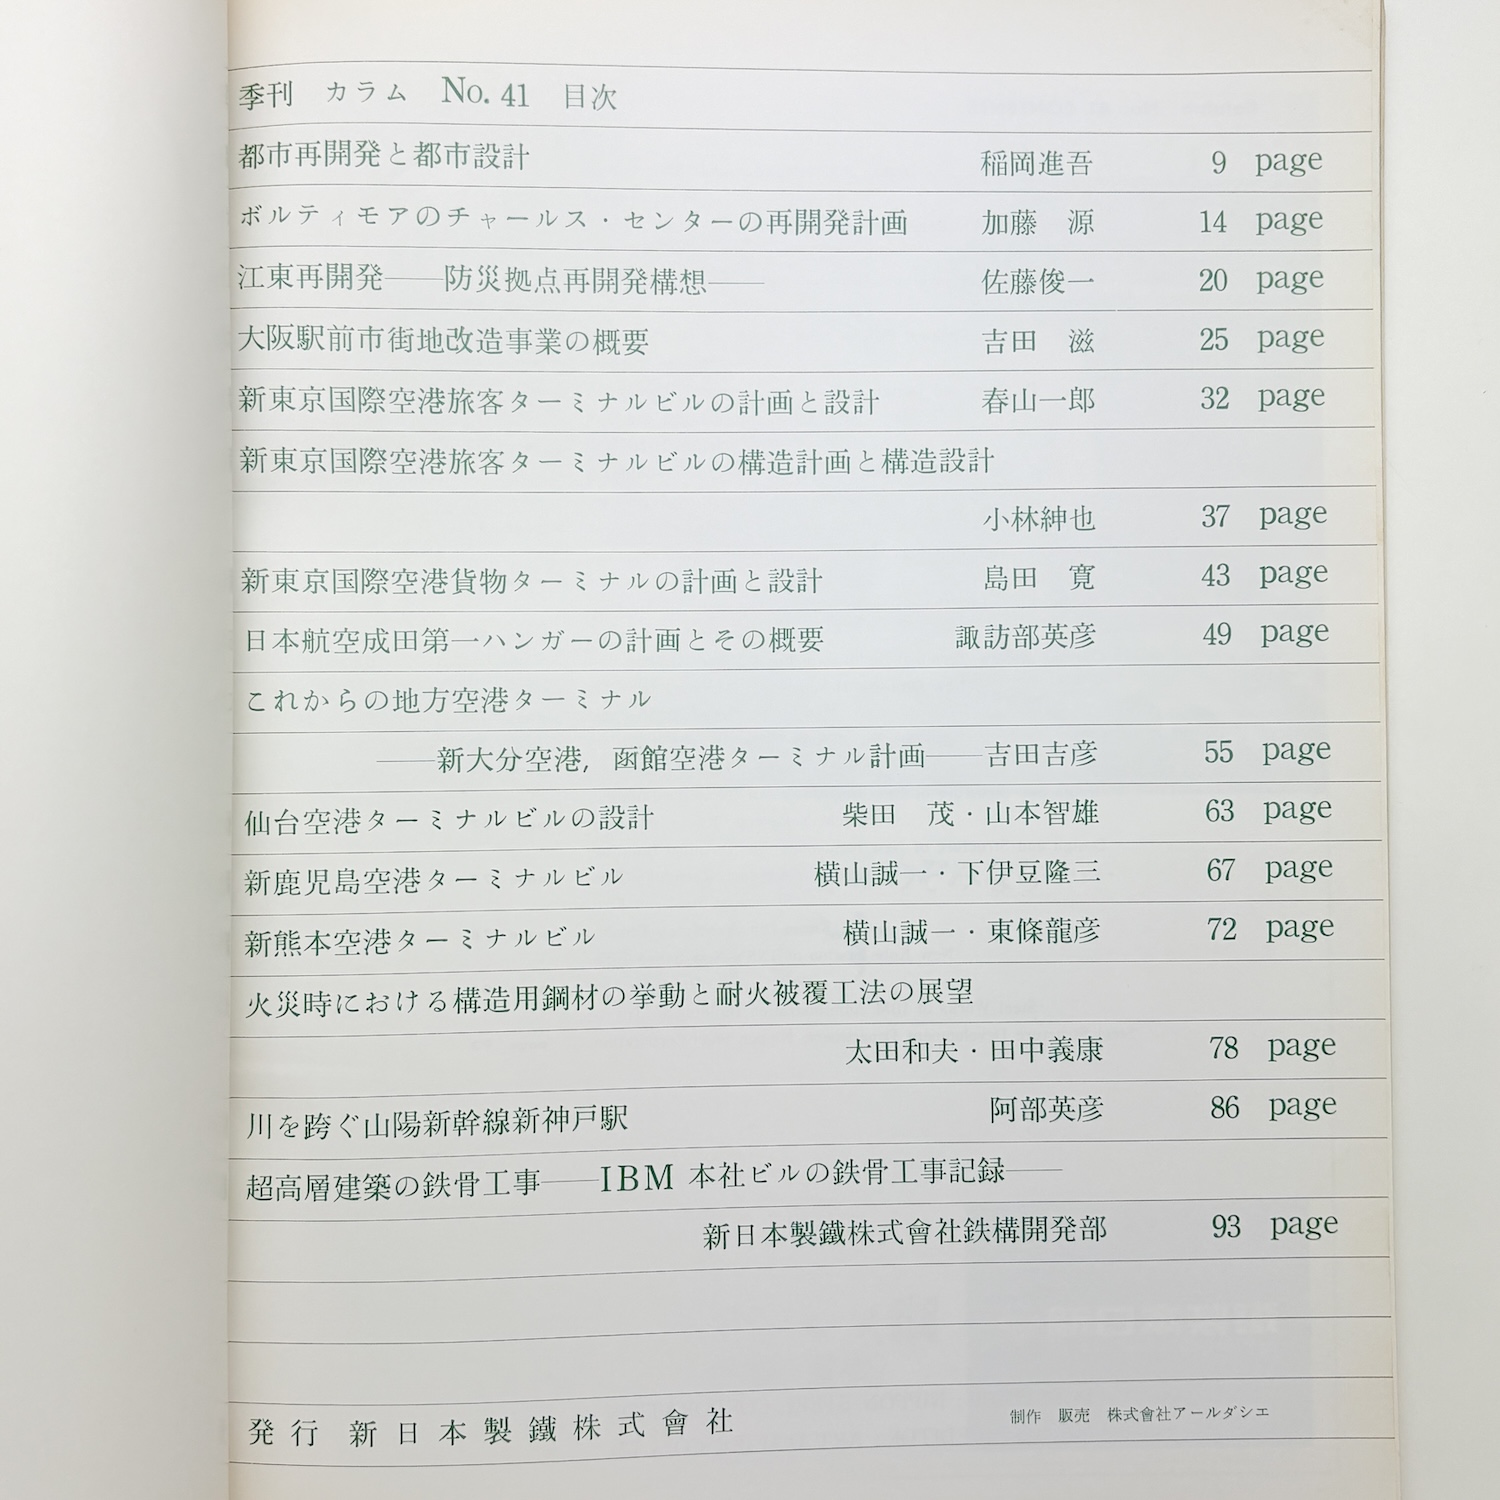 季刊　カラム　No. 41　目次
都市再開発と都市設計　稲岡進吾　9　page
ボルティモアのチャールス・センターの再開発計画　加藤　源　14　page
江東再開発――防災拠点再開発構想――　佐藤俊一　20　page
大阪駅前市街地改造事業の概要　吉田　滋　25　page
新東京国際空港旅客ターミナルビルの計画と設計　春山一郎　32　page
新東京国際空港旅客ターミナルビルの構造計画と構造設計
小林紳也　37　page
新東京国際空港貨物ターミナルの計画と設計　島田　寛　43　page
日本航空成田第一ハンガーの計画とその概要　諏訪部英彦　49　page
これからの地方空港ターミナル
――新大分空港，函館空港ターミナル計画――吉田吉彦　55　page
仙台空港ターミナルビルの設計　柴田　茂・山本智雄　63　page
新鹿児島空港ターミナルビル　横山誠一・下伊豆隆三　67　page
新熊本空港ターミナルビル　横山誠一・東條龍彦　72　page
火災時における構造用鋼材の挙動と耐火被覆工法の展望
太田和夫・田中義康　78　page
川を跨ぐ山陽新幹線新神戸駅　阿部英彦　86　page
超高層建築の鉄骨工事――IBM 本社ビルの鉄骨工事記録――
新日本製鐵株式會社鉄構開発部　93　page
発行　新日本製鐵株式會社　制作　販売　株式會社アールダシエ